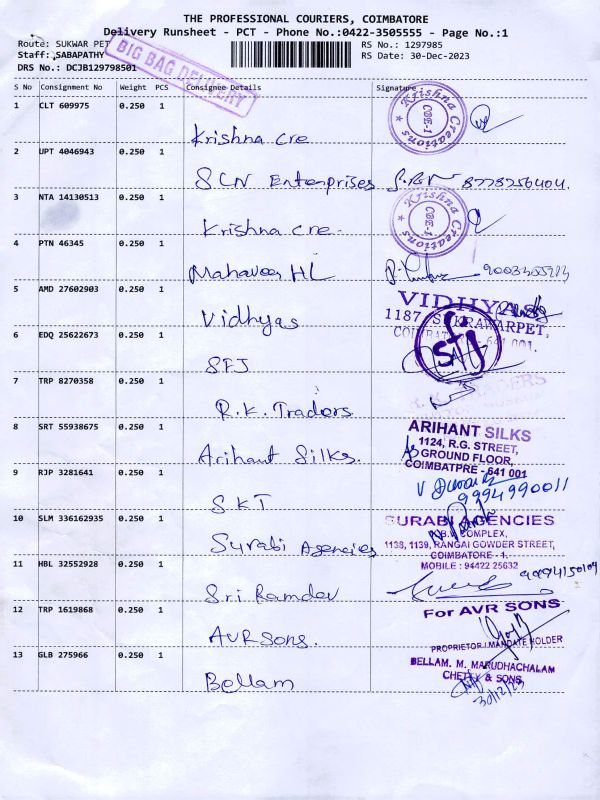 THE PROFESSIONAL COURIERS, COIMBATORE
Delivery Runsheet - PCT - Phone No.:0422-3505555 - Page No.:1
Route: SUKWAR PET
RS No.: 1297985
Staff: SABAPATHY
RS Date: 30-Dec-2023
DRS No.: DCJB129798501
BIG BAG DELIVERY
S No Consignment No Weight PCS Consignee Details Signature
1 CLT 609975 0.250 1 Krishna Cre
Krishna Creations CBE-1
2 UPT 4046943 0.250 1 SCN Enterprises 8778256404.
3 NTA 14130513 0.250 1 Krishna cre.
Krishna Creations CBE-1
4 PTN 46345 0.250 1 Mahaveer HL
5 AMD 27602903 0.250 1 Vidhyas
VIDHYAS
1187, SUKRAWARPET,
COIMBATORE - 641 001.
6 EDQ 25622673 0.250 1 SFJ
sfj
7 TRP 8270358 0.250 1 R.K. Traders
8 SRT 55938675 0.250 1 Arihant Silks.
ARIHANT SILKS
1124, R.G. STREET,
GROUND FLOOR,
COIMBATPRE - 641 001
9 RJP 3281641 0.250 1 SKT
9994990011
10 SLM 336162935 0.250 1 Surabi Agencies
SURABI AGENCIES
COMPLEX,
1138, 1139, RANGAI GOWDER STREET,
COIMBATORE - 1,
MOBILE : 94422 25632
11 HBL 32552928 0.250 1 Sri Ramdev
12 TRP 1619868 0.250 1 AVR Sons.
For AVR SONS
PROPRIETOR / MANDATE HOLDER
13 GLB 275966 0.250 1 Bellam
BELLAM. M. MARUDHACHALAM
CHETTY & SONS
30/12/23